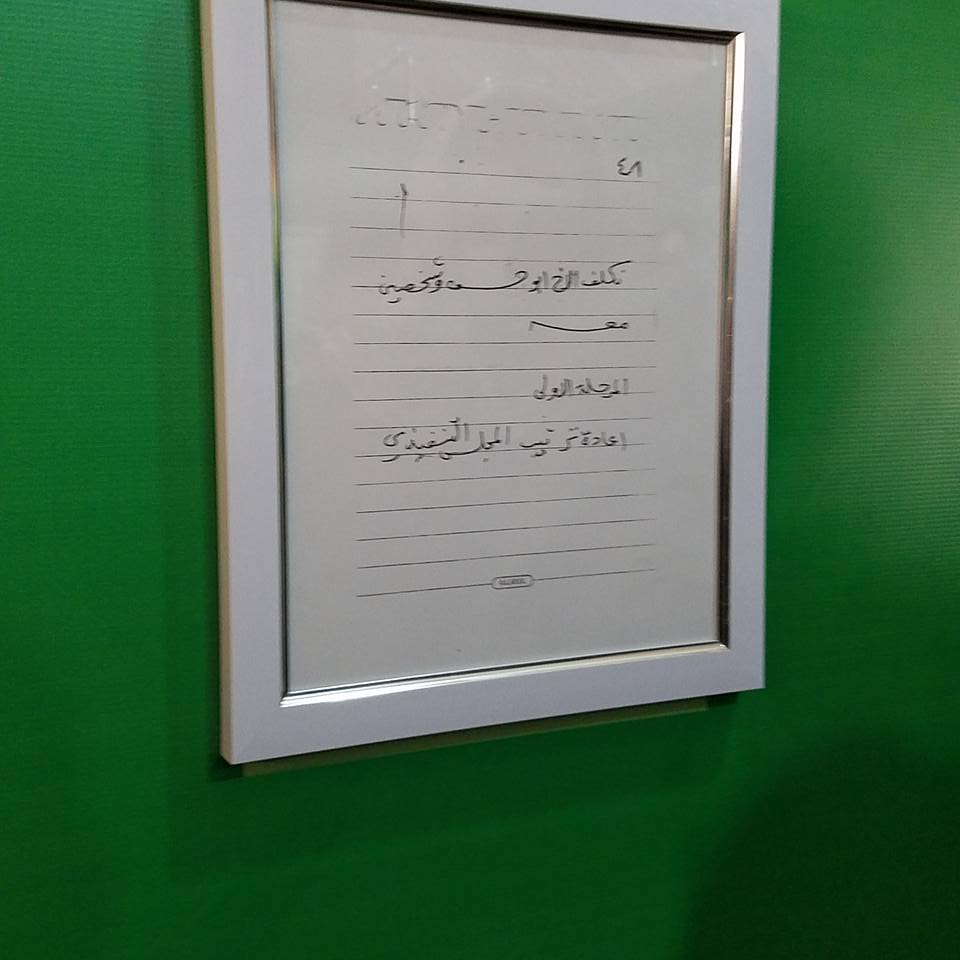 ٤٨
تكلف الاخ ابو حسن وشخصين
معه
المرحلة الاولى
اعادة ترتيب المجلس التنفيذي